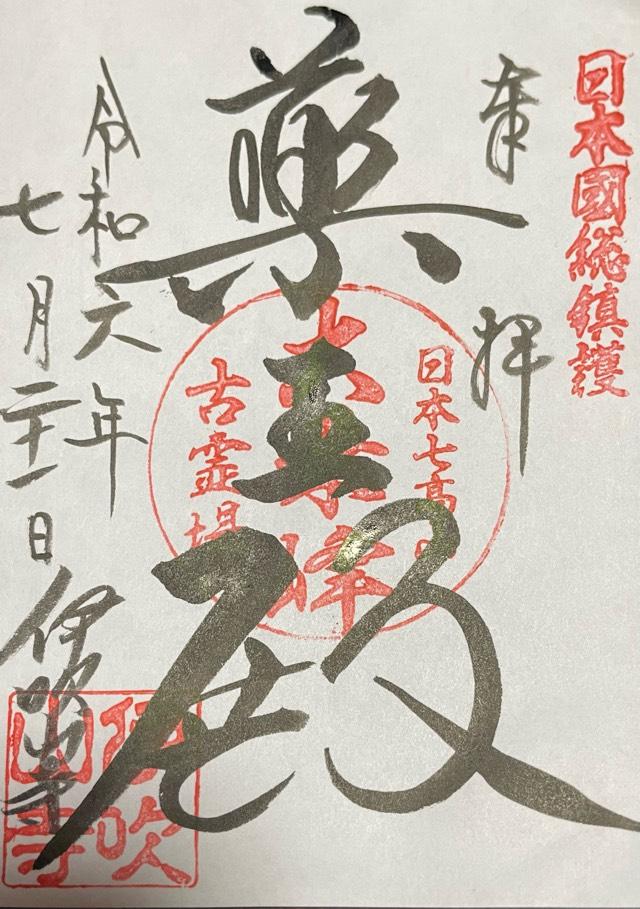 日本國総鎮護
奉拝
薬王殿
日本七高
古霊場
令和六年
七月二十一日
伊吹山寺
伊吹山寺